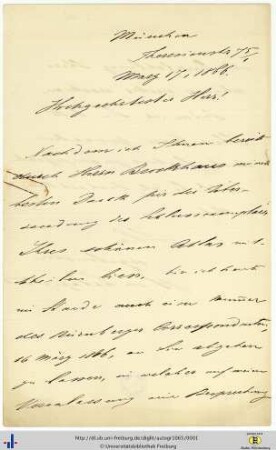 München
Theresienstr. 75/I
März 17, 1886.
Hochgeehrtester Herr!
Nachdem ich Ihnen bereits
durch Herrn Brockhaus meinen
besten Dank für die Über-
sendung des
Ihres schönen Atlas mit-
theilen liess, bin ich heute
im Stande auch eine Nummer
des Nürnberger Correspondenten,
16 März 1886, an Sie abgehen
zu lassen, in welcher auf meine
Veranlassung eine Besprechung
http://dl.ub.uni-freiburg.de/diglit/autogr1065/0001
©Universitätsbibliothek Freiburg